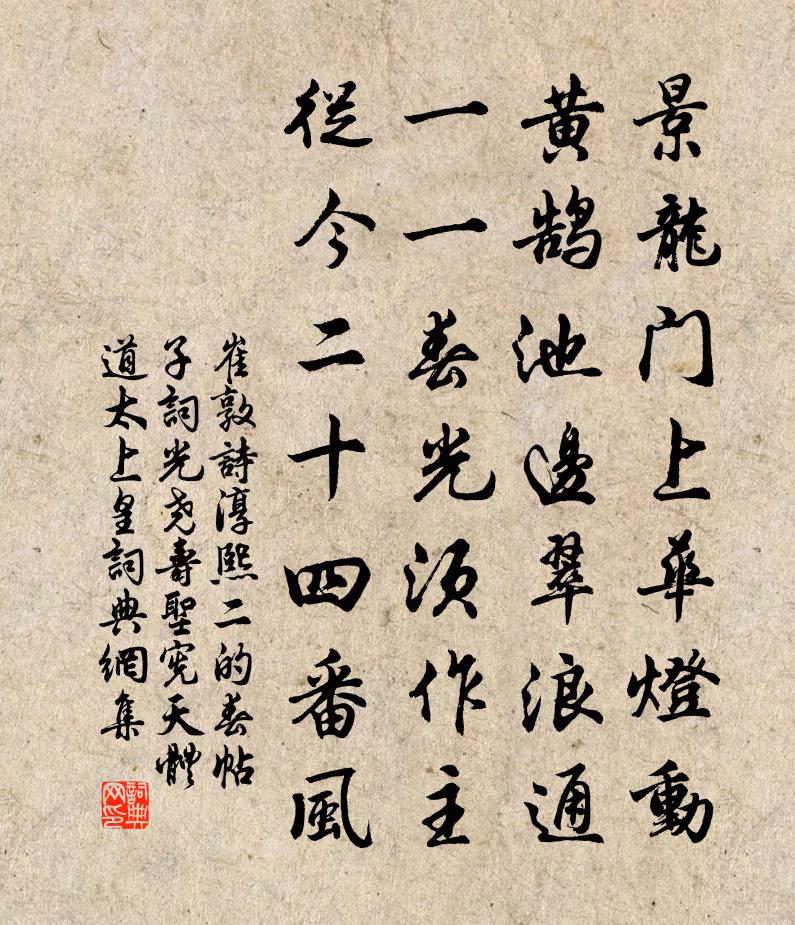 景龍门上華燈動
黃鹄池邊翠浪通
一一春光須作主
從今二十四番風
崔敦詩淳熙二的春帖
子詞光尧壽聖宪天體
道太上皇詞典網集
詞典网印